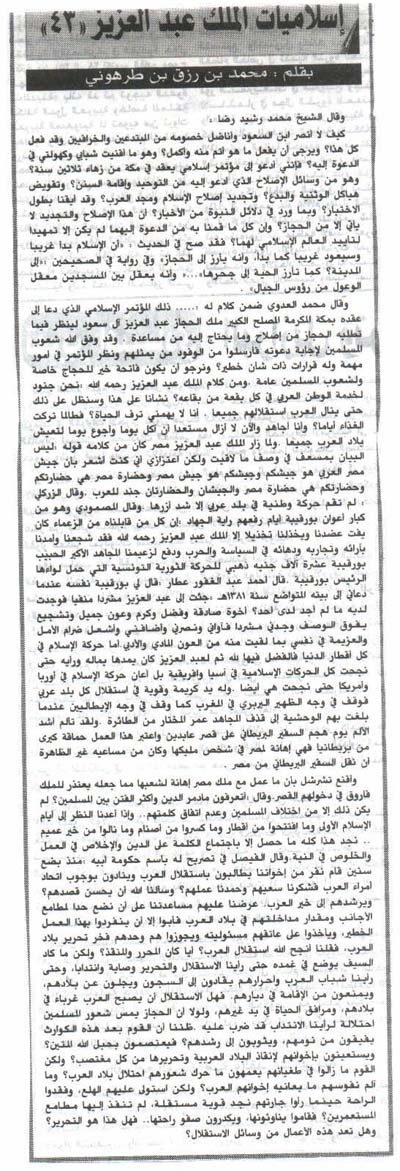 إسلاميات الملك عبد العزيز «٤٣»
بقلم : محمد بن رزق بن طرهوني
وقال الشيخ محمد رشيد رضا :
كيف لا أنصر ابن السعود وأناضل خصومه من المبتدعين والخرافيين وقد فعل
كل هذا؟ ويرجى أن يفعل ما هو أتم منه وأكمل؟ وهو ما أفنيت شبابي وكهولتي في
الدعوة إليه؟ فإنني أدعو إلى مؤتمر إسلامي يعقد في مكة من زهاء ثلاثين سنة؟
وهو من وسائل الإصلاح الذي أدعو إليه من التوحيد وإقامة السنن؟ وتقويض
هياكل الوثنية والبدع؟ وتجديد إصلاح الإسلام ومجد العرب؟ وقد أيقنا بطول
الاختبار؟ وبما ورد في دلائل النبوة من الأخبار؟ أن هذا الإصلاح والتجديد لا
يأتي إلا من الحجاز؟ وإن كل ما قمنا به من الدعوة إليهما لم يكن إلا تمهيدا
لتأييد العالم الإسلامي لهما؟ فقد صح في الحديث : «إن الإسلام بدأ غريبا
وسيعود غريبا كما بدأ، وأنه يأرز إلى الحجاز، وفي رواية في الصحيحين ،«إلى
المدينة؟ كما تأرز الحية إلى جحرها»... وأنه يعقل بين المسجدين معقل
الوعول من رؤوس الجبال» .
وقال محمد العدوي ضمن كلام له ..... : ذلك المؤتمر الإسلامي الذي دعا إلى
عقده بمكة المكرمة المصلح الكبير ملك الحجاز عبد العزيز آل سعود لينظر فيما
تطلبه الحجاز من إصلاح وما يحتاج إليه من مساعدة . وقد وفق الله شعوب
المسلمين لإجابة دعوته فأرسلوا من الوفود من يمثلهم ونظر المؤتمر في أمور
مهمة وله قرارات ذات شأن خطير؟ ونرجو أن يكون فاتحة خير للحجاز خاصة
ولشعوب المسلمين عامة .ومن كلام الملك عبد العزيز رحمه الله :نحن جنود
لخدمة الوطن العربي في كل بقعة من بقاعه؟ نشأنا على هذا وسنظل على ذلك
حتى ينال العرب استقلالهم جميعا . أنا لا يهمني ترف الحياة؟ فطالما تركت
الغذاء أياما؟ وأنا أجاهد والآن لا أزال مستعدا أن آكل يوما وأجوع يوما لتعيش
بلاد العرب جميعا .ولما زار الملك عبد العزيز مصر كان من كلامه قوله :ليس
البيان بمسعف في وصف ما لاقيت ولكن اعتزازي أني كنت أشعر بأن جيش
مصر العربي هو جيشكم وجيشكم هو جيش مصر وحضارة مصر هي حضارتكم
وحضارتكم هي حضارة مصر والجيشان والحضارتان جند للعرب .وقال الزركلي
، لم تقم حركة وطنية في بلد عربي إلا شد أزرها. وقال المصمودي وهو من
كبار أعوان بورقيبة أيام رفعهم راية الجهاد :إن كل من قابلناه من الزعماء كان
يفت عضدنا ويخذلنا تخذيلا إلا الملك عبد العزيز رحمه الله فقد شجعنا وأمدنا
بآرائه وتجاربه ودهائه في السياسة والحرب ودفع لزعيمنا المجاهد الأكبر الحبيب
بورقيبة عشرة آلاف جنيه ذهبي للحركة الثورية التونسية التي حمل لواءها
الرئيس بورقيبة. قال أحمد عبد الغفور عطار :قال لي بورقيبة نفسه عندما
دعاني إلى بيته المتواضع سنة ١٣٨١هـ .جئت إلى عبد العزيز مشردا منفيا فوجدت
لديه ما لم أجد لدى أحد؟ أخوة صادقة وفضل وكرم وعون جميل وتشجيع
يفوق الوصف وجدني مشردا فآواني ونصرني وأضافني وأشعل ضرام الأمل
والعزيمة في نفسي بما لقيت منه من العون المادي والأدبي أما حركة الإسلام في
كل أقطار الدنيا فالفضل فيها لله ثم لعبد العزيز كان يمدها بماله ورأيه حتى
نجحت كل الحركات الإسلامية في آسيا وأفريقية بل أعان حركة الإسلام في أوربا
وأمريكا حتى نجحت هي أيضا .وله يد كريمة وقوية في استقلال كل بلد عربي
فوقف في وجه الظهير البربري في المغرب كما وقف في وجه الإيطاليين عندما
بلغت بهم الوحشية إلى قذف المجاهد عمر المختار من الطائرة. ولقد تألم أشد
الألم يوم هجم السفير البريطاني على قصر عابدين واعتبر هذا العمل حماقة كبرى
من بريطانيا فهي إهانة لمصر في شخص مليكها وكان من مساعيه غير الظاهرة
أن نقل السفير البريطاني من مصر.
وأقنع تشرشل بأن ما عمل مع ملك مصر إهانة لشعبها مما جعله يعتذر للملك
فاروق في دخولهم القصر.وقال :أتعرفون مادمر الدين وأكثر الفتن بين المسلمين؟ لم
يكن ذلك إلا من اختلاف المسلمين وعدم اتفاق كلمتهم.. وإذا أعدنا النظر إلى أيام
الإسلام الأولى وما افتتحوا من أقطار وما كسروا من أصنام وما نالوا من خير عميم
.. نجد هذا كله ما حصل إلا باجتماع الكلمة على الدين والإخلاص في العمل
والخلوص في النية.وقال الفيصل في تصريح له باسم حكومة أبيه :منذ بضع
سنين قام نفر من إخواننا يطالبون باستقلال العرب وينادون بوجوب اتحاد
أمراء العرب فشكرنا سعيهم وحمدنا عملهم؟ وسألنا الله أن يحسن قصدهم؟
ويرشدهم إلى خير العرب. عرضنا عليهم مساعدتنا على أن نضع حدا لمطامع
الأجانب ومقدار مداخلتهم في بلاد العرب فأبوا إلا أن ينفردوا بهذا العمل
الخطير، ويأخذوا على عاتقهم مسئوليته ويحوزوا هم وحدهم فخر تحرير بلاد
العرب، فقلنا أنجح الله استقلال العرب؟ أيا كان المحرر والمنقذ؟ ولكن ما كاد
السيف يوضع في غمده حتى رأينا الاستقلال والتحرير وصاية وانتدابا، وحتى
رأينا شباب العرب وأحرارهم يقادون إلى السجون ويجلون عن بلادهم،
ويمنعون من الإقامة في ديارهم. فهل الاستقلال أن يصبح العرب غرباء في
بلادهم، ومرافق الحياة في يد غيرهم، ولولا أن الحجاز يمس شعور المسلمين
احتلاله لرأينا الانتداب قد ضرب عليه . ظننا أن القوم بعد هذه الكوارث
يفيقون من نومهم، ويثوبون إلى رشدهم؟ فيعتصمون بحبل الله المتين؟
ويستعينون بإخوانهم لإنقاذ البلاد العربية وتحريرها من كل مغتصب؟ ولكن
القوم ما زالوا في طغيانهم يعمهون ما حرك شعورهم احتلال بلاد العرب؟ وما
ألم نفوسهم ما يعانيه إخوانهم العرب؟ ولكن استولى عليهم الهلع، وفقدوا
الراحة حينما رأوا جارتهم نجد قوية مستقلة، لم تنفذ إليها مطامع
المستعمرين؟ فقاموا يناوئونها، ويكدرون صفو راحتها.. فهل هذا هو التحرير؟
وهل تعد هذه الأعمال من وسائل الاستقلال؟